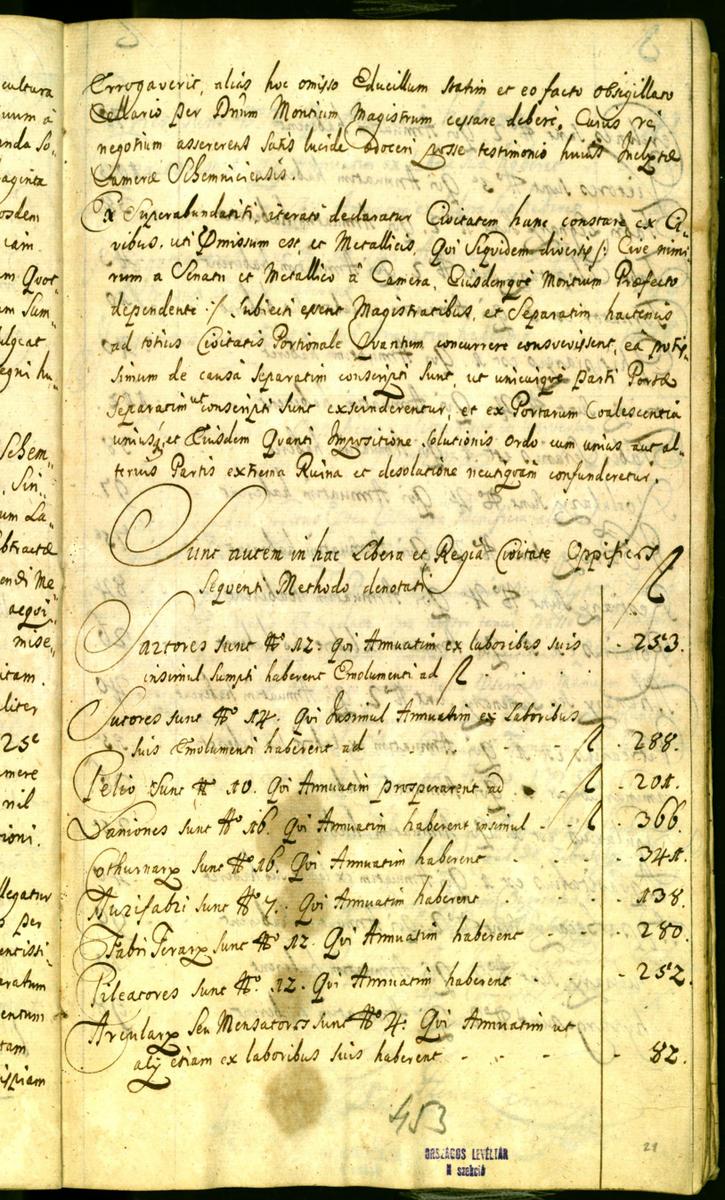 Errogaverit, alias hoc omisso Educillum statim et eo facto obsigillato
Cellario per Dnum Montium Magistrum cessare deberet, Cuius rei
negotium assererent satis lucide edoceri posse testimonio huius Inclytæ
Cameræ Schemniciensis.
Ex Superabundanti, iterato declaratur Civitatem hanc constare ex Ci-
vibus, uti Præmissum est, et Metallicis, Qui Siquidem diversis /: Cive nimi-
rum a Senatu et Metallico à Camera, Eiusdemque Montium Præfecto
dependente :/ Subiecti essent Magistratibus, et Separatim hactenus
ad totius Civitatis Portionale Quantum concurrere consvevissent, ea potis-
simum de causa Separatim conscripti sunt, ut unicuique parti Portæ
Separatim ut conscripti sunt exscinderentur, et ex Portarum Coalescentia
uniusq, et Eiusdem Quanti Impositione solutionis ordo cum unius aut al-
terius Partis extrema Ruina et desolatione neutiquam confunderetur.
Sunt autem in hac Libera et Regia Civitate Oppifices
Sequenti Methodo denotati fl
Sartores sunt No 12. Qui Annuatim ex laboribus suis
insimul sumpti haberent Emolumenti ad fl . . . 253.
Sutores sunt No 14. Qui Insimul Annuatim ex Laboribus
suis Emolumenti haberent ad . . . fl . 288.
Pelio sunt No 10. Qui Annuatim prosperarent ad . fl . 201.
Laniones sunt No 16. Qui Annuatim haberent insimul - fl . 366.
Cothurnarij sunt No 16. Qui Annuatim haberent . . . 341.
Aurifabri sunt No 7. Qui Annuatim haberent . . . 138.
Fabri Ferarij sunt No 12. Qui Annuatim haberent . . . 280.
Pileatores sunt No. 12. Qui Annuatim haberent . . . 252.
Arcularij Seu Mensatores sunt No 4. Qui Annuatim ut
alij etiam ex laboribus suis haberent - - - . 82.
453
ORSZÁGOS LEVÉLTÁR
N szekció
21